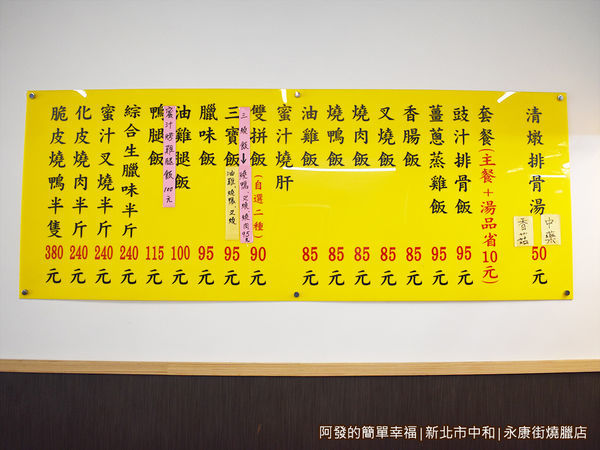 清燉排骨湯 50元
中藥
香菇
套餐(主餐+湯品省10元)
豉汁排骨飯 95元
薑蔥蒸雞飯 95元
香腸飯 85元
叉燒飯 85元
燒肉飯 85元
燒鴨飯 85元
油雞飯 85元
蜜汁燒肝
雙拼飯(自選二種) 90元
三燒飯→燒鴨、叉燒、燒肉95元
三寶飯 95元
油雞、燒鴨、叉燒
臘味飯 95元
油雞腿飯 100元
蜜汁烤雞腿飯 100元
鴨腿飯 115元
綜合生臘味半斤 240元
蜜汁叉燒半斤 240元
化皮燒肉半斤 240元
脆皮燒鴨半隻 380元
阿發的簡單幸福|新北市中和|永康街燒臘店